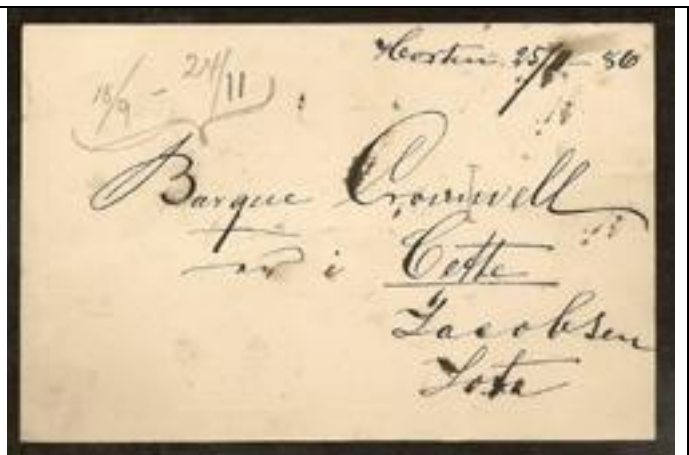 Horten 25/11 - 86
18/9 - 24/11
Barque Cromwell
i Cette
Jacobsen